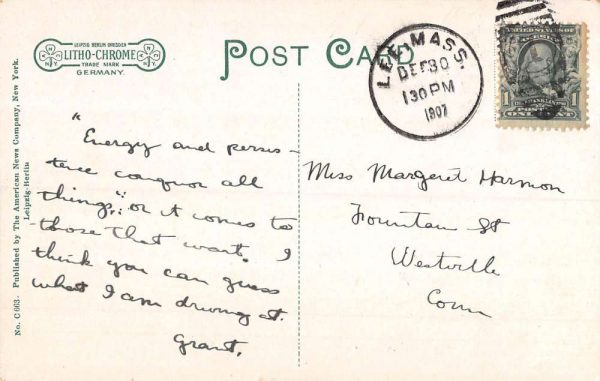 LEIPZIG BERLIN DRESDEN
LITHO-CHROME
TRADE MARK
GERMANY.
POST CARD
LEE, MASS.
DEC 30
130 PM
1907
UNITED STATES OF
1
FRANKLIN
POSTAGE
ONE CENT
1
No. C 663. Published by The American News Company, New York.
Leipzig-Berlin
"Energy and persis-
tence conquor all
things," or it comes to
those that want. I
think you can guess
what I am driving at.
Grant.
Miss Margeret Harmon
Fountain St
Westville
Conn